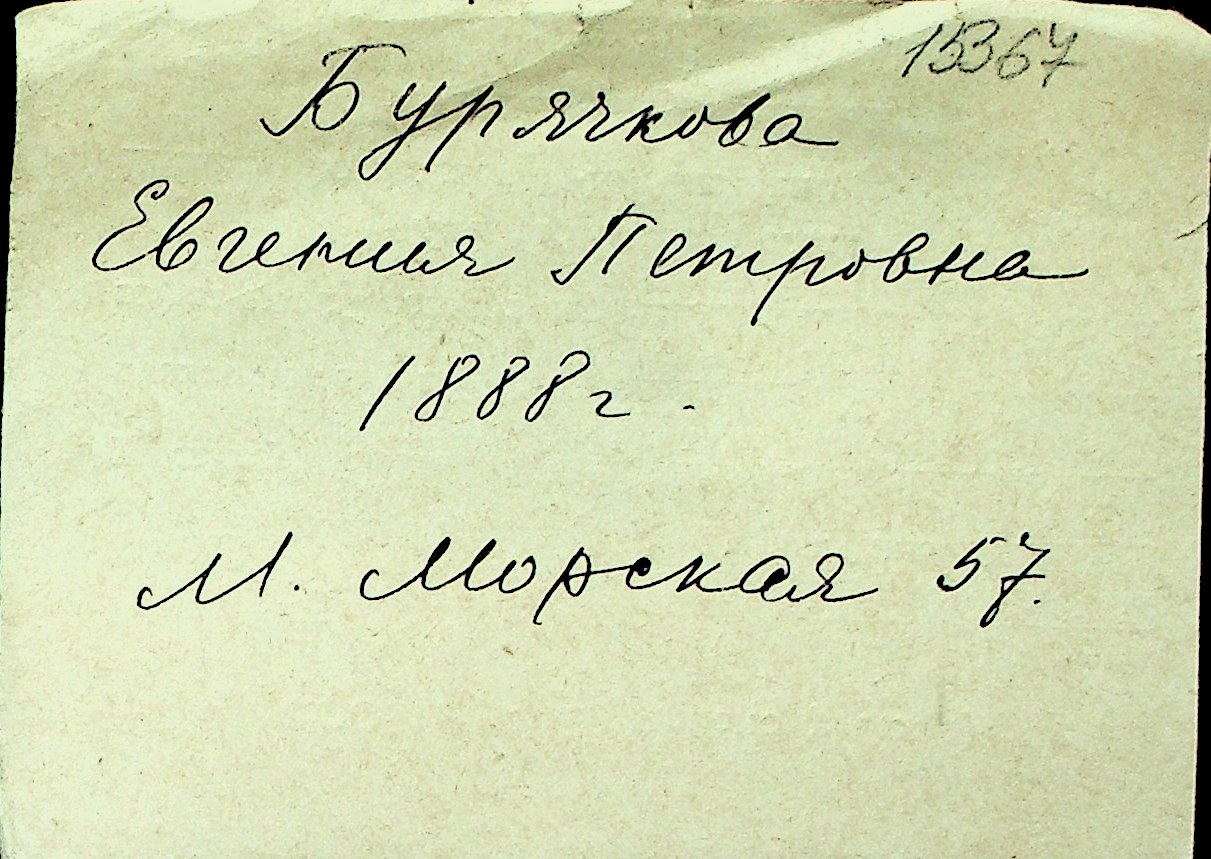 15367
Бурячкова
Евгения Петровна
1888г.
М. Морская 57.